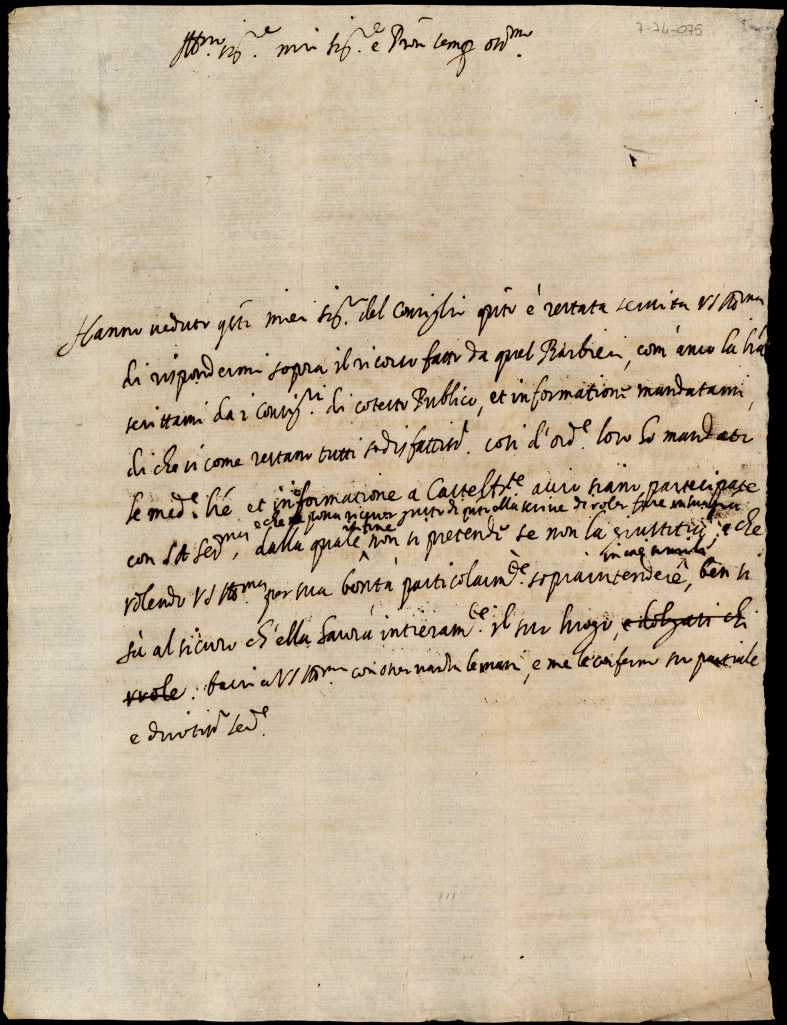 7-74-075
Ill.mo sig.re mio sig.re e Pron semp oss.mo
Hanno veduto q.sti miei sig.ri del Consiglio q.to è restata servita VS Ill.ma
di rispondermi sopra il ricorso fatto da quel Barbieri, com' anco la l'ha
scrittami da i Consig.ri di cotesto Publico, et informatione mandatami,
di che si come restano tutti sodisfattiss.i così d'ord.e loro ho mandato
le med.e l're et informatione a acciò siano participate
con S A Ser.ma, dalla quale in fine non si pretende se non la giustitia, e che
e che
volendo VS Ill.ma per sua bontà particolarm.te sopraintendere, ben si
sà al sicuro ch'ella haurà intieram.te il suo luogo, e
vuole. bacio a VS Ill.ma con osservanza le mani, e me le confermo su partiale
e divotiss.o ser.e